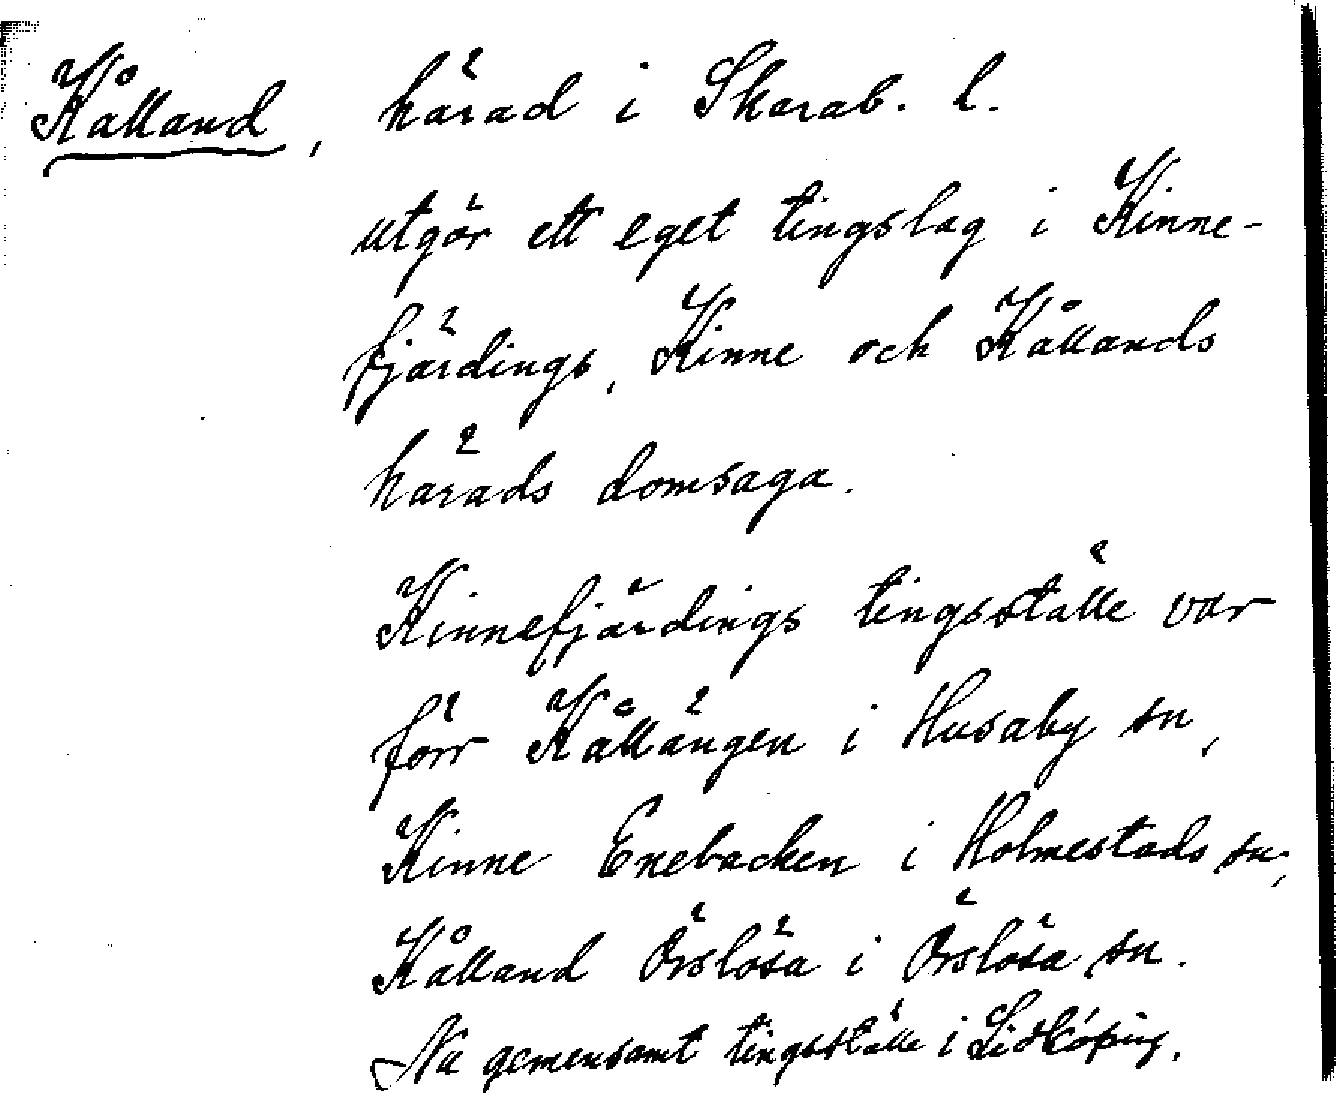 Kålland, härad i Skarab. l.
utgör ett eget tingslag i Kinne-
fjärdings, Kinne och Kållands
härads domsaga.
Kinnefjärdings tingsställe var
förr Kållängen i Husaby sn,
Kinne Enebacken i Holmestads sn,
Kålland Örslösa i Örslösa sn.
Nu gemensamt tingsställe i Lidköping.